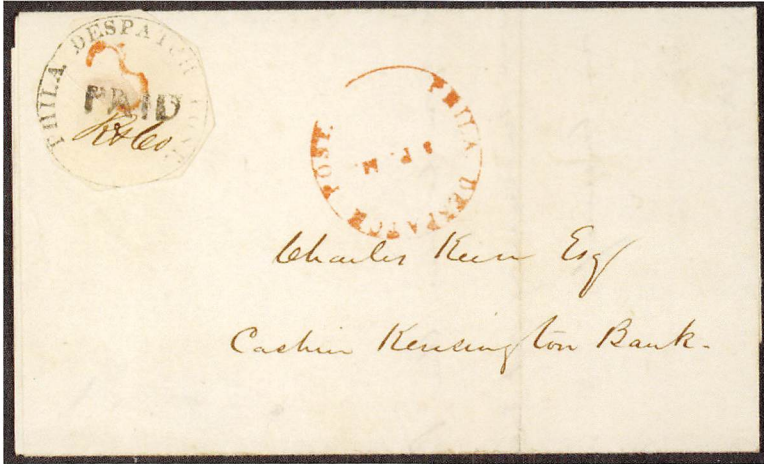 PHILA DESPATCH POST
3
PAID
R & Co
PHILA DESPATCH POST.
3 P. M.
Charles Keen Esq
Cashier Kensington Bank.